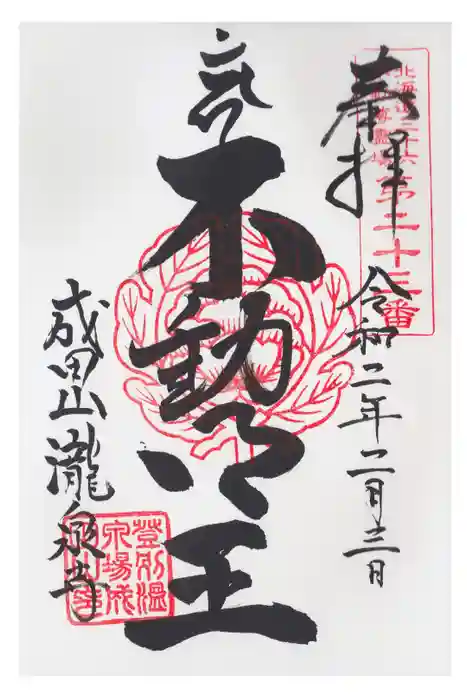 奉拝
北海道三十六
不動尊霊場
第二十三番
令和二年二月三日
不動明王
成田山瀧泉寺
登別温
泉場成
田山寺